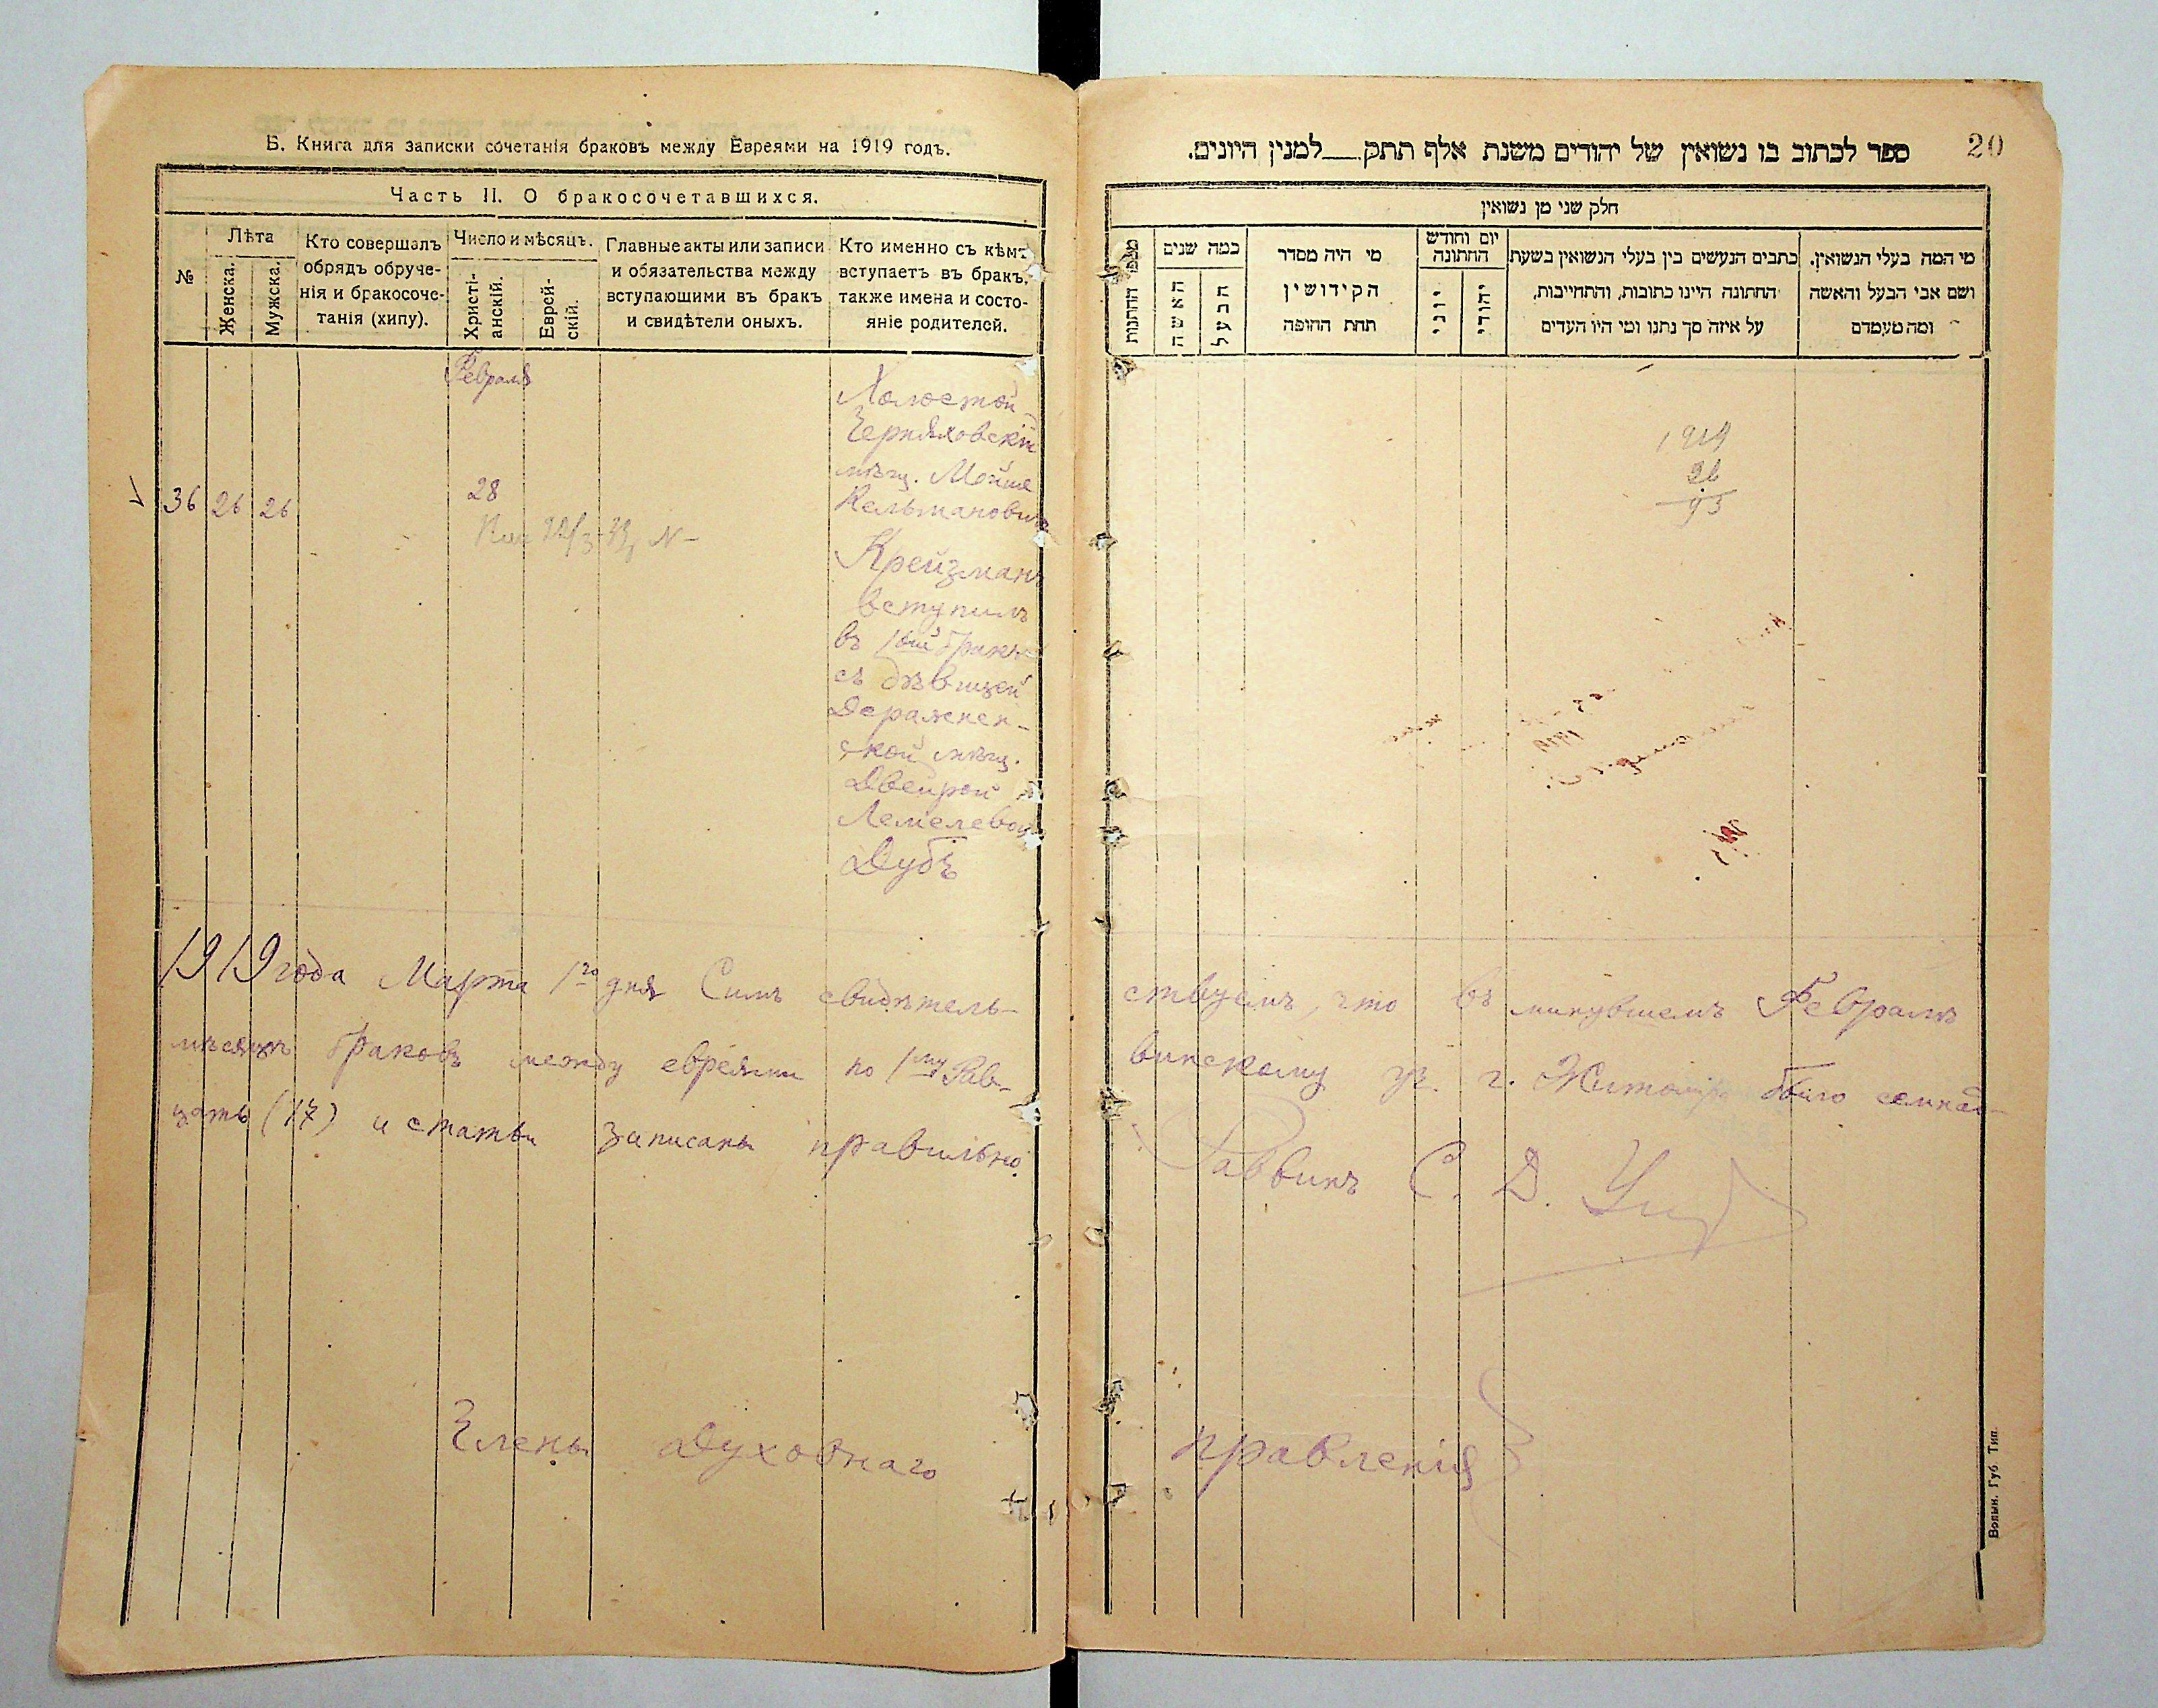 Б. Книга для записки сочетанія браковъ между Евреями на 1919 годъ.
Часть II. О бракосочетавшихся.
№
Лѣта
Женска.
Мужска.
Кто совершалъ
обрядъ обруче-
нія и бракосоче-
танія (хипу).
Число и мѣсяцъ.
Христі-
анскій.
Еврей-
скій.
Главные акты или записи
и обязательства между
вступающими въ бракъ
и свидѣтели оныхъ.
Кто именно съ кѣмъ
вступаетъ въ бракъ,
также имена и состо-
яніе родителей.
Февраля
36 26 26 28
Холостой
Черняховскій
мѣщ. Мойше
Кельманович
Крейзманъ
вступилъ
въ 1ый бракъ
съ дѣвицей
Деражнен-
ской мѣщ.
Двейрой
Лемелевой
Дубъ
20
ספר לכתוב בו נשואין של יהודים משנת אלף תתק___למנין היונים.
חלק שני מן נשואין
מספר החתנות
כמה שנים
האשה
הבעל
מי היה מסדר
הקידושין
תחת החופה
יום וחודש
החתונה
יוני
יהודי
כתבים הנעשים בין בעלי הנשואין בשעת
החתונה היינו כתובות, והתחייבות,
על איזה סך נתנו ומי היו העדים
מי המה בעלי הנשואין.
ושם אבי הבעל והאשה
ומה מעמדם
1919
26
93
1919 года Марта 1го дня Симъ свидѣтель-ствуемъ, что въ минувшемъ Февралѣ
мѣсяцѣ браковъ между евреями по 1му Рав-винскому уч. г. Житомира было семнад-
цать (17) и статьи записаны правильно.
Раввинъ С. Д.
Члены Духовнаго правленія
Волын. Губ. Тип.